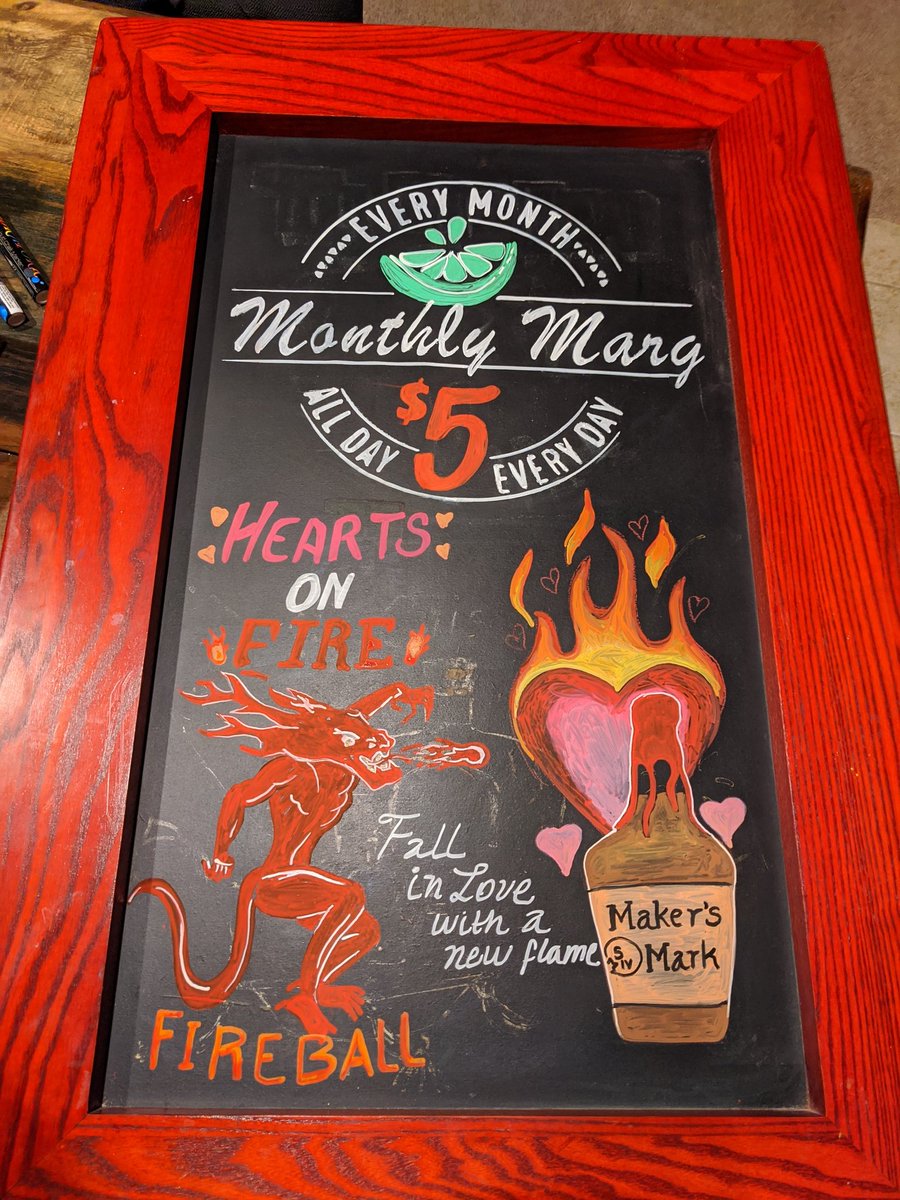 EVERY MONTH
Monthly Marg
$5
ALL DAY EVERY DAY
HEARTS
ON
FIRE
Fall
in Love
with a
new flame
Maker's
S IV Mark
FIREBALL